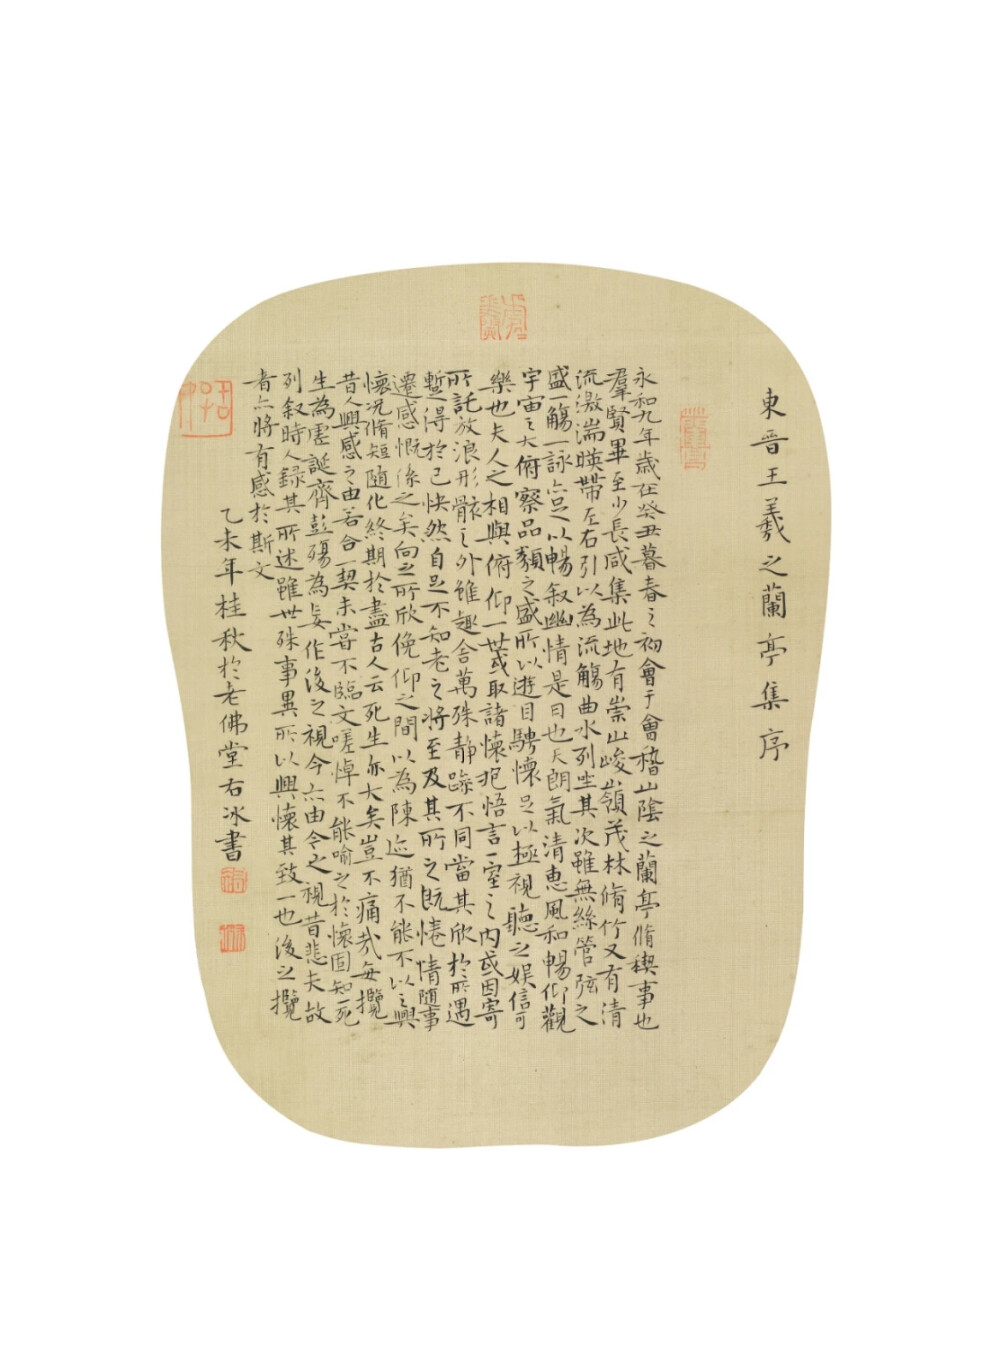 東晋王羲之蘭亭集序
永和九年歲在癸丑暮春之初會于會稽山陰之蘭亭脩稧事也
羣賢畢至少長咸集此地有崇山峻嶺茂林脩竹又有清
流激湍暎帶左右引以為流觴曲水列坐其次雖無絲管弦之
盛一觴一詠亦足以暢叙幽情是日也天朗氣清惠風和暢仰觀
宇宙之大俯察品類之盛所以遊目騁懷足以極視聽之娱信可
樂也夫人之相與俯仰一世或取諸懷抱悟言一室之内或因寄
所託放浪形骸骨之外雖趣舍萬殊静躁不同當其欣於所遇
蹔得於己快然自足不知老之将至及其所之既惓情隨事
遷感慨係之矣向之所欣俛仰之間以為陳迹猶不能不以之興
懷况脩短隨化終期於盡古人云死生亦大矣豈不痛哉每攬
昔人興感之由若合一契未嘗不臨文嗟悼不能喻之於懷固知一死
生為虚誕齊彭殤為妄作後之視今亦由今之視昔悲夫故
列叙時人録其所述雖世殊事異所以興懷其致一也後之攬
者亦将有感於斯文
乙未年桂秋於老佛堂右冰書